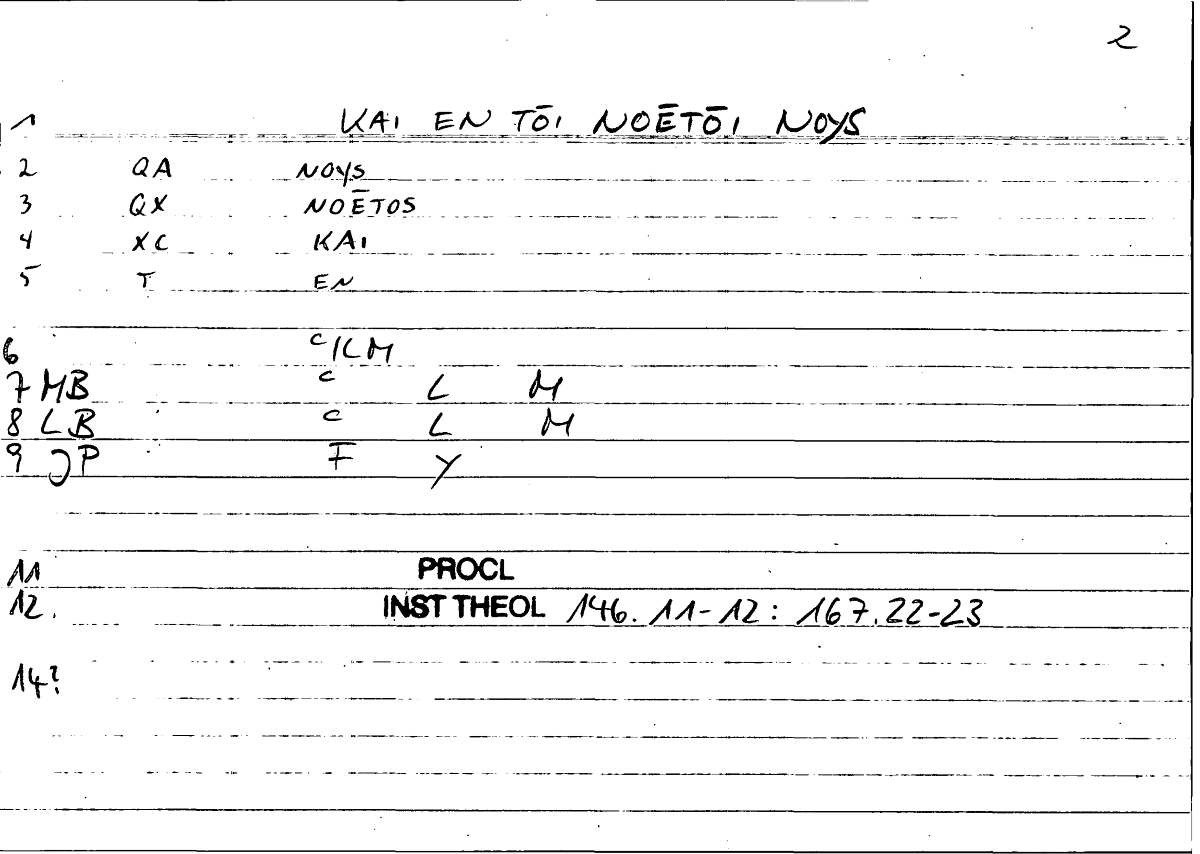 2
1 KAI EN TŌI NOĒTŌI NOYS
2 QA NOYS
3 QX NOĒTOS
4 XC KAI
5 T EN
6 C/LM
7 MB C L M
8 LB C L M
9 JP F Y
11 PROCL
12. INST THEOL 146.11-12: 167.22-23
14?